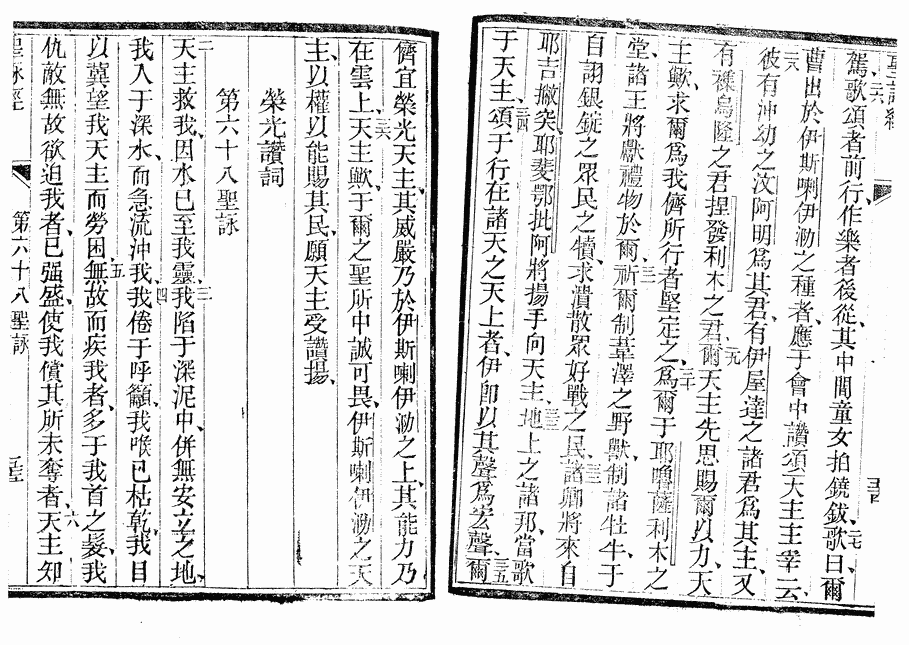 聖詠經
駕歌頌者前行、作樂者後從、其中間童女拍鐃鈸歌曰、爾
曹出於伊斯喇伊泐之種者、應于會中讚頌天主主宰云、
彼有沖幼之汶阿明爲其君、有伊屋達之諸君爲其主、又
之君捏發利木之君、爾天主先思賜爾以力、天
主歟、求爾爲我儕所行者堅定之、爲爾于耶嚕薩利木之
堂、諸王將獻禮物於爾、祈爾制葦澤之野獸、制諸牡牛、于
自詡銀錠之眾民之犢、求潰散眾好戰之民、諸卿將來自
耶吉撇突、耶斐鄂批阿將揚手向天主、地上之諸邦、當歌
于天主、頌于行在諸天之天上者、伊卽以其聲爲宏聲、爾
儕宜榮光天主、其威嚴乃於伊斯喇伊泐之上、其能力乃
在雲上、天主歟、于爾之聖所中誠可畏、伊斯喇伊泐之天
主、以權以能賜其民、願天主受讚揚、
榮光讚詞
第六十八聖詠
二天主救我、因水已至我靈、三我陷于深泥中、併無安立之地、
我入于深水、而急流沖我、四我倦于呼籲、我喉已枯乾、我目
以冀望我天主而勞困、五無故而疾我者、多于我首之髮、我
仇敵無故欲迫我者、已强盛、使我償其所未奪者、六天主知
聖詠經 第六十八聖詠